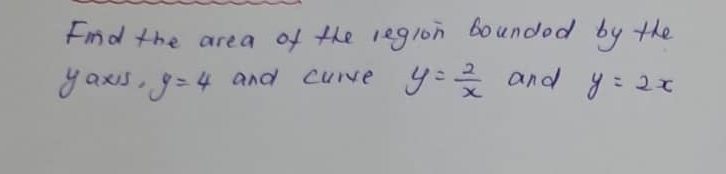 Find the area of the region bounded by the
y axis, y = 4 and curve y = 2/x and y = 2x